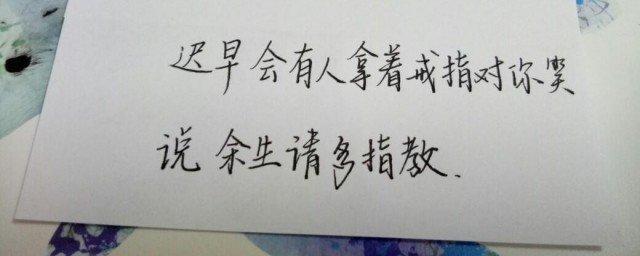 迟早会有人拿着戒指对你笑
说 余生请多指教.